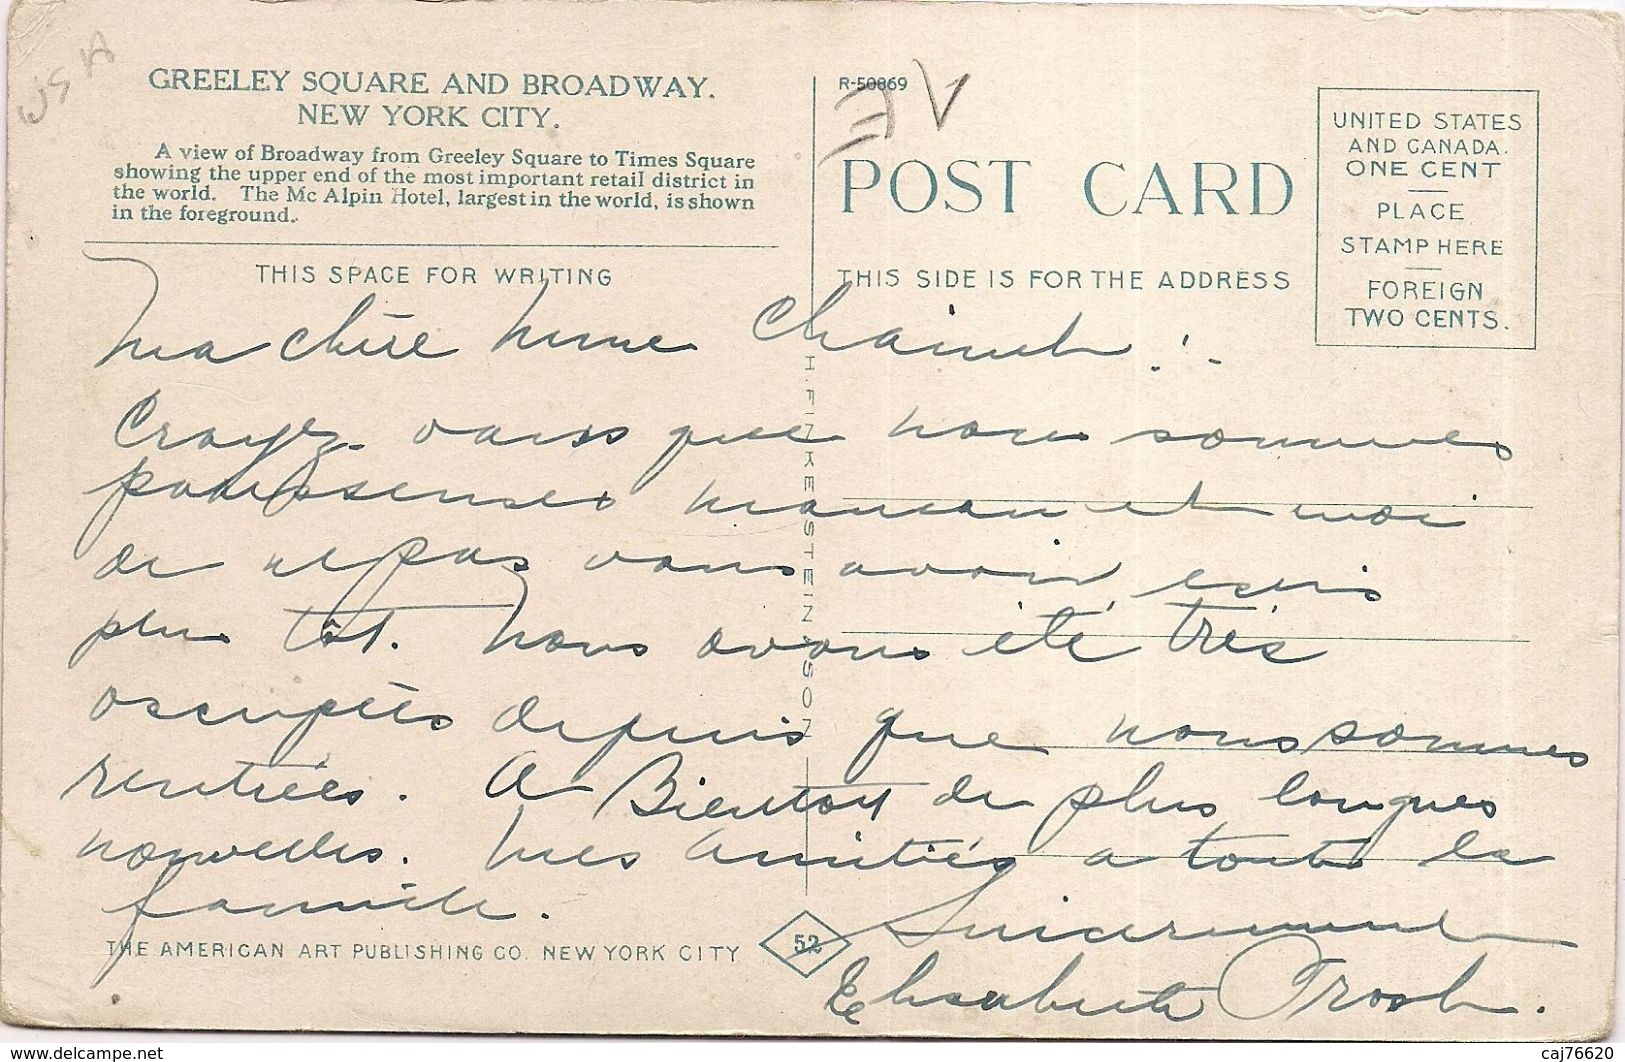 USA
GREELEY SQUARE AND BROADWAY.
NEW YORK CITY.
A view of Broadway from Greeley Square to Times Square
showing the upper end of the most important retail district in
the world. The Mc Alpin Hotel, largest in the world, is shown
in the foreground.
THIS SPACE FOR WRITING
R-50869
POST CARD
THIS SIDE IS FOR THE ADDRESS
UNITED STATES
AND CANADA.
ONE CENT
PLACE
STAMP HERE
FOREIGN
TWO CENTS.
H. FINKELSTEIN & SON
Ma chère Mme
Croyez vous que nous sommes
maman et moi
de ne pas vous avoir écris
plus tôt. Nous avons été très
occupées depuis que nous sommes
rentrées. A Bientot de plus longues
nouvelles. Mes Amitiés a toute la
famille. Sincerement
Elisabeth
THE AMERICAN ART PUBLISHING CO. NEW YORK CITY
52
www.delcampe.net
caj76620